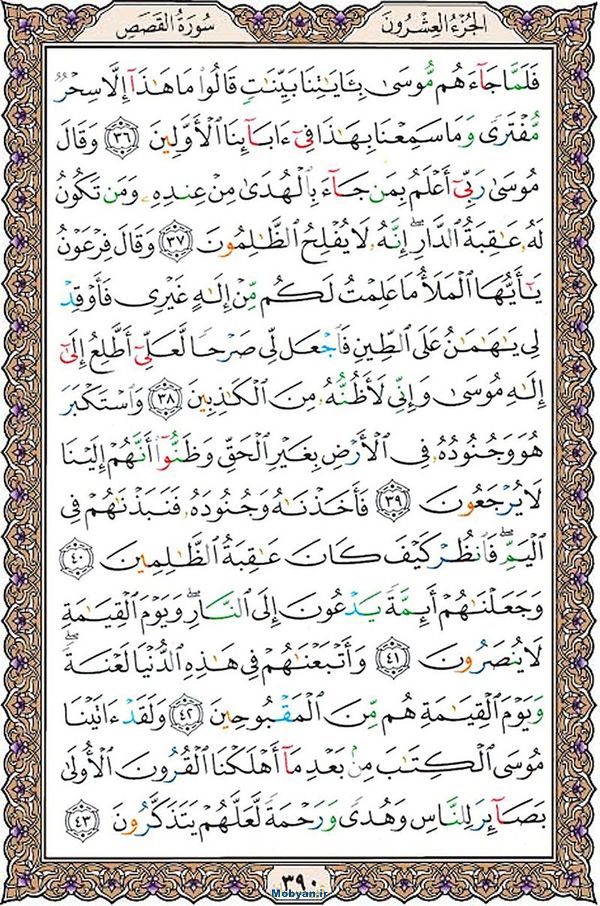 الجُزءُ العِشْرُونَ سُورَةُ القَصَصِ
فَلَمَّا جَآءَهُم مُّوسَىٰ بِـَٔايَٰتِنَا بَيِّنَٰتٍ قَالُوا۟ مَا هَٰذَآ إِلَّا سِحْرٌ
مُّفْتَرًى وَمَا سَمِعْنَا بِهَٰذَا فِىٓ ءَابَآئِنَا ٱلْأَوَّلِينَ ٣٦ وَقَالَ
مُوسَىٰ رَبِّىٓ أَعْلَمُ بِمَن جَآءَ بِٱلْهُدَىٰ مِنْ عِندِهِۦ وَمَن تَكُونُ
لَهُۥ عَٰقِبَةُ ٱلدَّارِ ۖ إِنَّهُۥ لَا يُفْلِحُ ٱلظَّٰلِمُونَ ٣٧ وَقَالَ فِرْعَوْنُ
يَٰٓأَيُّهَا ٱلْمَلَأُ مَا عَلِمْتُ لَكُم مِّنْ إِلَٰهٍ غَيْرِى فَأَوْقِدْ
لِى يَٰهَٰمَٰنُ عَلَى ٱلطِّينِ فَٱجْعَل لِّى صَرْحًا لَّعَلِّىٓ أَطَّلِعُ إِلَىٰٓ
إِلَٰهِ مُوسَىٰ وَإِنِّى لَأَظُنُّهُۥ مِنَ ٱلْكَٰذِبِينَ ٣٨ وَٱسْتَكْبَرَ
هُوَ وَجُنُودُهُۥ فِى ٱلْأَرْضِ بِغَيْرِ ٱلْحَقِّ وَظَنُّوٓا۟ أَنَّهُمْ إِلَيْنَا
لَا يُرْجَعُونَ ٣٩ فَأَخَذْنَٰهُ وَجُنُودَهُۥ فَنَبَذْنَٰهُمْ فِى
ٱلْيَمِّ ۖ فَٱنظُرْ كَيْفَ كَانَ عَٰقِبَةُ ٱلظَّٰلِمِينَ ٤٠
وَجَعَلْنَٰهُمْ أَئِمَّةً يَدْعُونَ إِلَى ٱلنَّارِ ۖ وَيَوْمَ ٱلْقِيَٰمَةِ
لَا يُنصَرُونَ ٤١ وَأَتْبَعْنَٰهُمْ فِى هَٰذِهِ ٱلدُّنْيَا لَعْنَةً ۖ
وَيَوْمَ ٱلْقِيَٰمَةِ هُم مِّنَ ٱلْمَقْبُوحِينَ ٤٢ وَلَقَدْ ءَاتَيْنَا
مُوسَى ٱلْكِتَٰبَ مِنۢ بَعْدِ مَآ أَهْلَكْنَا ٱلْقُرُونَ ٱلْأُولَىٰ
بَصَآئِرَ لِلنَّاسِ وَهُدًى وَرَحْمَةً لَّعَلَّهُمْ يَتَذَكَّرُونَ ٤٣
٣٩٠
Mobyan.ir